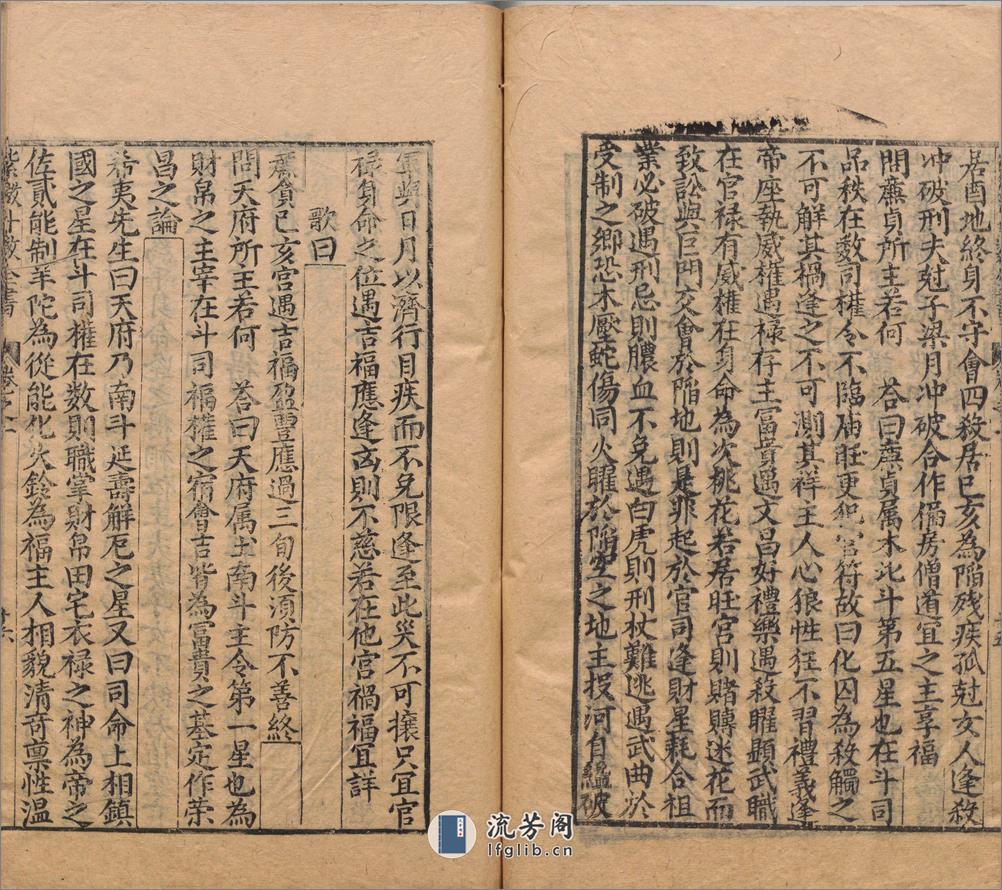 居酉地終身不守會四殺居巳亥為陷殘疾孤尅女人逢殺
冲破刑夫尅子梁月冲破合作偏房僧道宜之主享福
問㢘貞所主若何　荅曰㢘貞属木北斗第五星也在斗司
品秩在数司權令不臨庙旺更犯官符故曰化囚為殺觸之
不可解其禍逢之不可測其祥主人心狼性狂不習禮義逢
帝座執威權遇禄存主富貴遇文昌好禮樂遇殺曜顕武職
在官禄有威權在身命為次桃花若居旺宮則賭賻迷花而
致訟與巨門交會於陷地則是非起於官司逢財星耗合祖
業必破遇刑忌則膿血不免遇白虎則刑杖難逃遇武曲於
受制之鄉恐木壓蛇傷同火曜於陷空之地主投河自縊破
軍與日月以濟行目疾而不免限逢至此災不可攘只宜官
禄身命之位遇吉福應逢凶則不慈若在他宮禍福宜詳
歌曰
㢘貪巳亥宮遇吉福盈豐應過三旬後湏防不善終
問天府所主若何　荅曰天府属土南斗主令第一星也為
財帛之主宰在斗司福權之宿會吉皆為冨貴之基定作荣
昌之論
希夷先生曰天府乃南斗延壽解厄之星又曰司命上相鎮
國之星在斗司權在数則職掌財帛田宅衣禄之神為帝之
佐貳能制羊陀為從能化火鈴為福主人相貌清奇禀性温
紫微斗数全書
卷之一
廿六
流芳阁
lfglib.cn